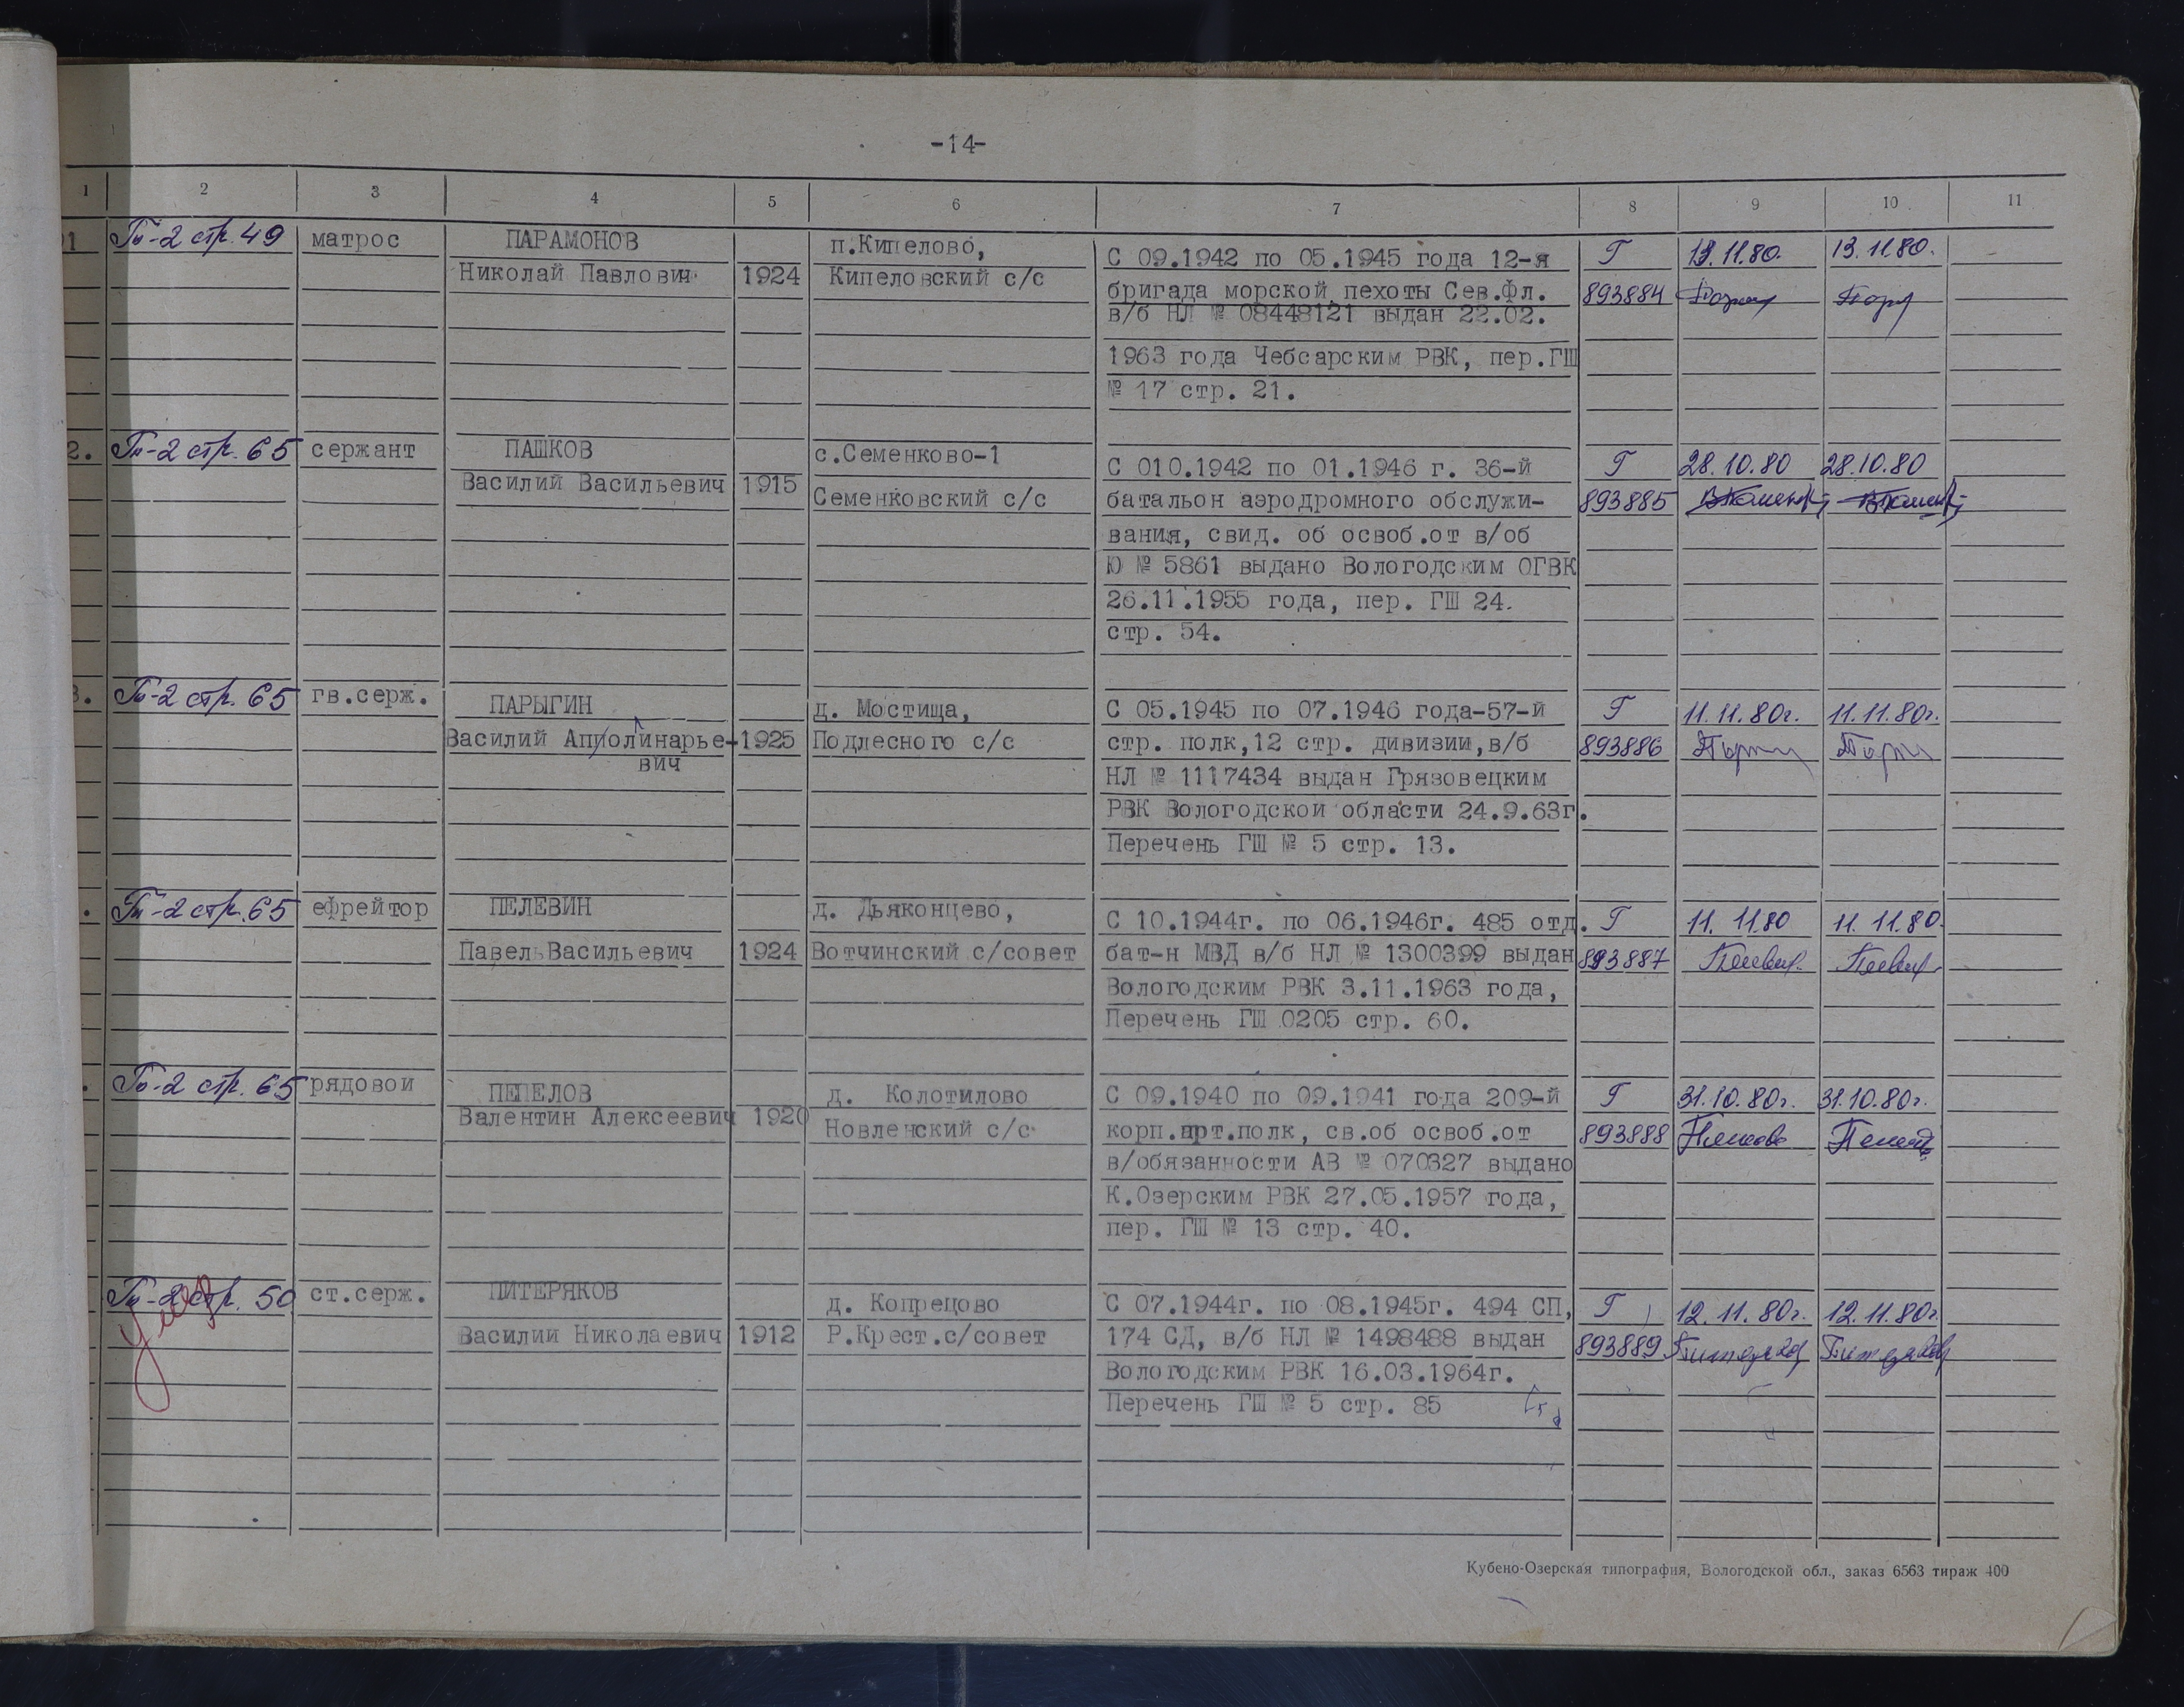 -14-
1 2 3 4 5 6 7 8 9 10 11
1 Гв-2 стр. 49 матрос ПАРАМОНОВ п.Кипелово, С 09.1942 по 05.1945 года 12-я Г 13.11.80. 13.11.80.
Николай Павлович 1924 Кипеловский с/с бригада морской пехоты Сев.Фл. 893884
в/б НЛ № 08448121 выдан 22.02.
1963 года Чебсарским РВК, пер.ГШ
№ 17 стр. 21.
2. Гв-2 стр. 65 сержант ПАШКОВ с.Семенково-1 С 010.1942 по 01.1946 г. 36-й Г 28.10.80 28.10.80
Василий Васильевич 1915 Семенковский с/с батальон аэродромного обслужи- 893885
вания, свид. об освоб.от в/об
Ю № 5861 выдано Вологодским ОГВК
26.11.1955 года, пер. ГШ 24.
стр. 54.
3. Гв-2 стр. 65 гв.серж. ПАРЫГИН д. Мостища, С 05.1945 по 07.1946 года-57-й Г 11.11.80г. 11.11.80г.
Василий Апполинарье- 1925 Подлесного с/с стр. полк,12 стр. дивизии,в/б 893886
вич НЛ № 1117434 выдан Грязовецким
РВК Вологодской области 24.9.63г.
Перечень ГШ № 5 стр. 13.
. Гв-2 стр. 65 ефрейтор ПЕЛЕВИН д. Дьяконцево, С 10.1944г. по 06.1946г. 485 отд. Г 11. 11.80 11. 11.80.
Павел Васильевич 1924 Вотчинский с/совет бат-н МВД в/б НЛ № 1300399 выдан 893887
Вологодским РВК 3.11.1963 года,
Перечень ГШ 0205 стр. 60.
. Гв-2 стр. 65 рядовой ПЕПЕЛОВ д. Колотилово С 09.1940 по 09.1941 года 209-й Г 31.10.80г. 31.10.80г.
Валентин Алексеевич 1920 Новленский с/с корп.арт.полк, св.об освоб.от 893888
в/обязанности АВ № 070327 выдано
К.Озерским РВК 27.05.1957 года,
пер. ГШ № 13 стр. 40.
Гв-2 стр. 50 ст.серж. ПИТЕРЯКОВ д. Копрецово С 07.1944г. по 08.1945г. 494 СП, Г 12.11.80г. 12.11.80г.
Василий Николаевич 1912 Р.Крест.с/совет 174 СД, в/б НЛ № 1498488 выдан 893889 Питеряков Питеряков
Вологодским РВК 16.03.1964г.
Перечень ГШ № 5 стр. 85
Кубено-Озерская типография, Вологодской обл., заказ 6563 тираж 400